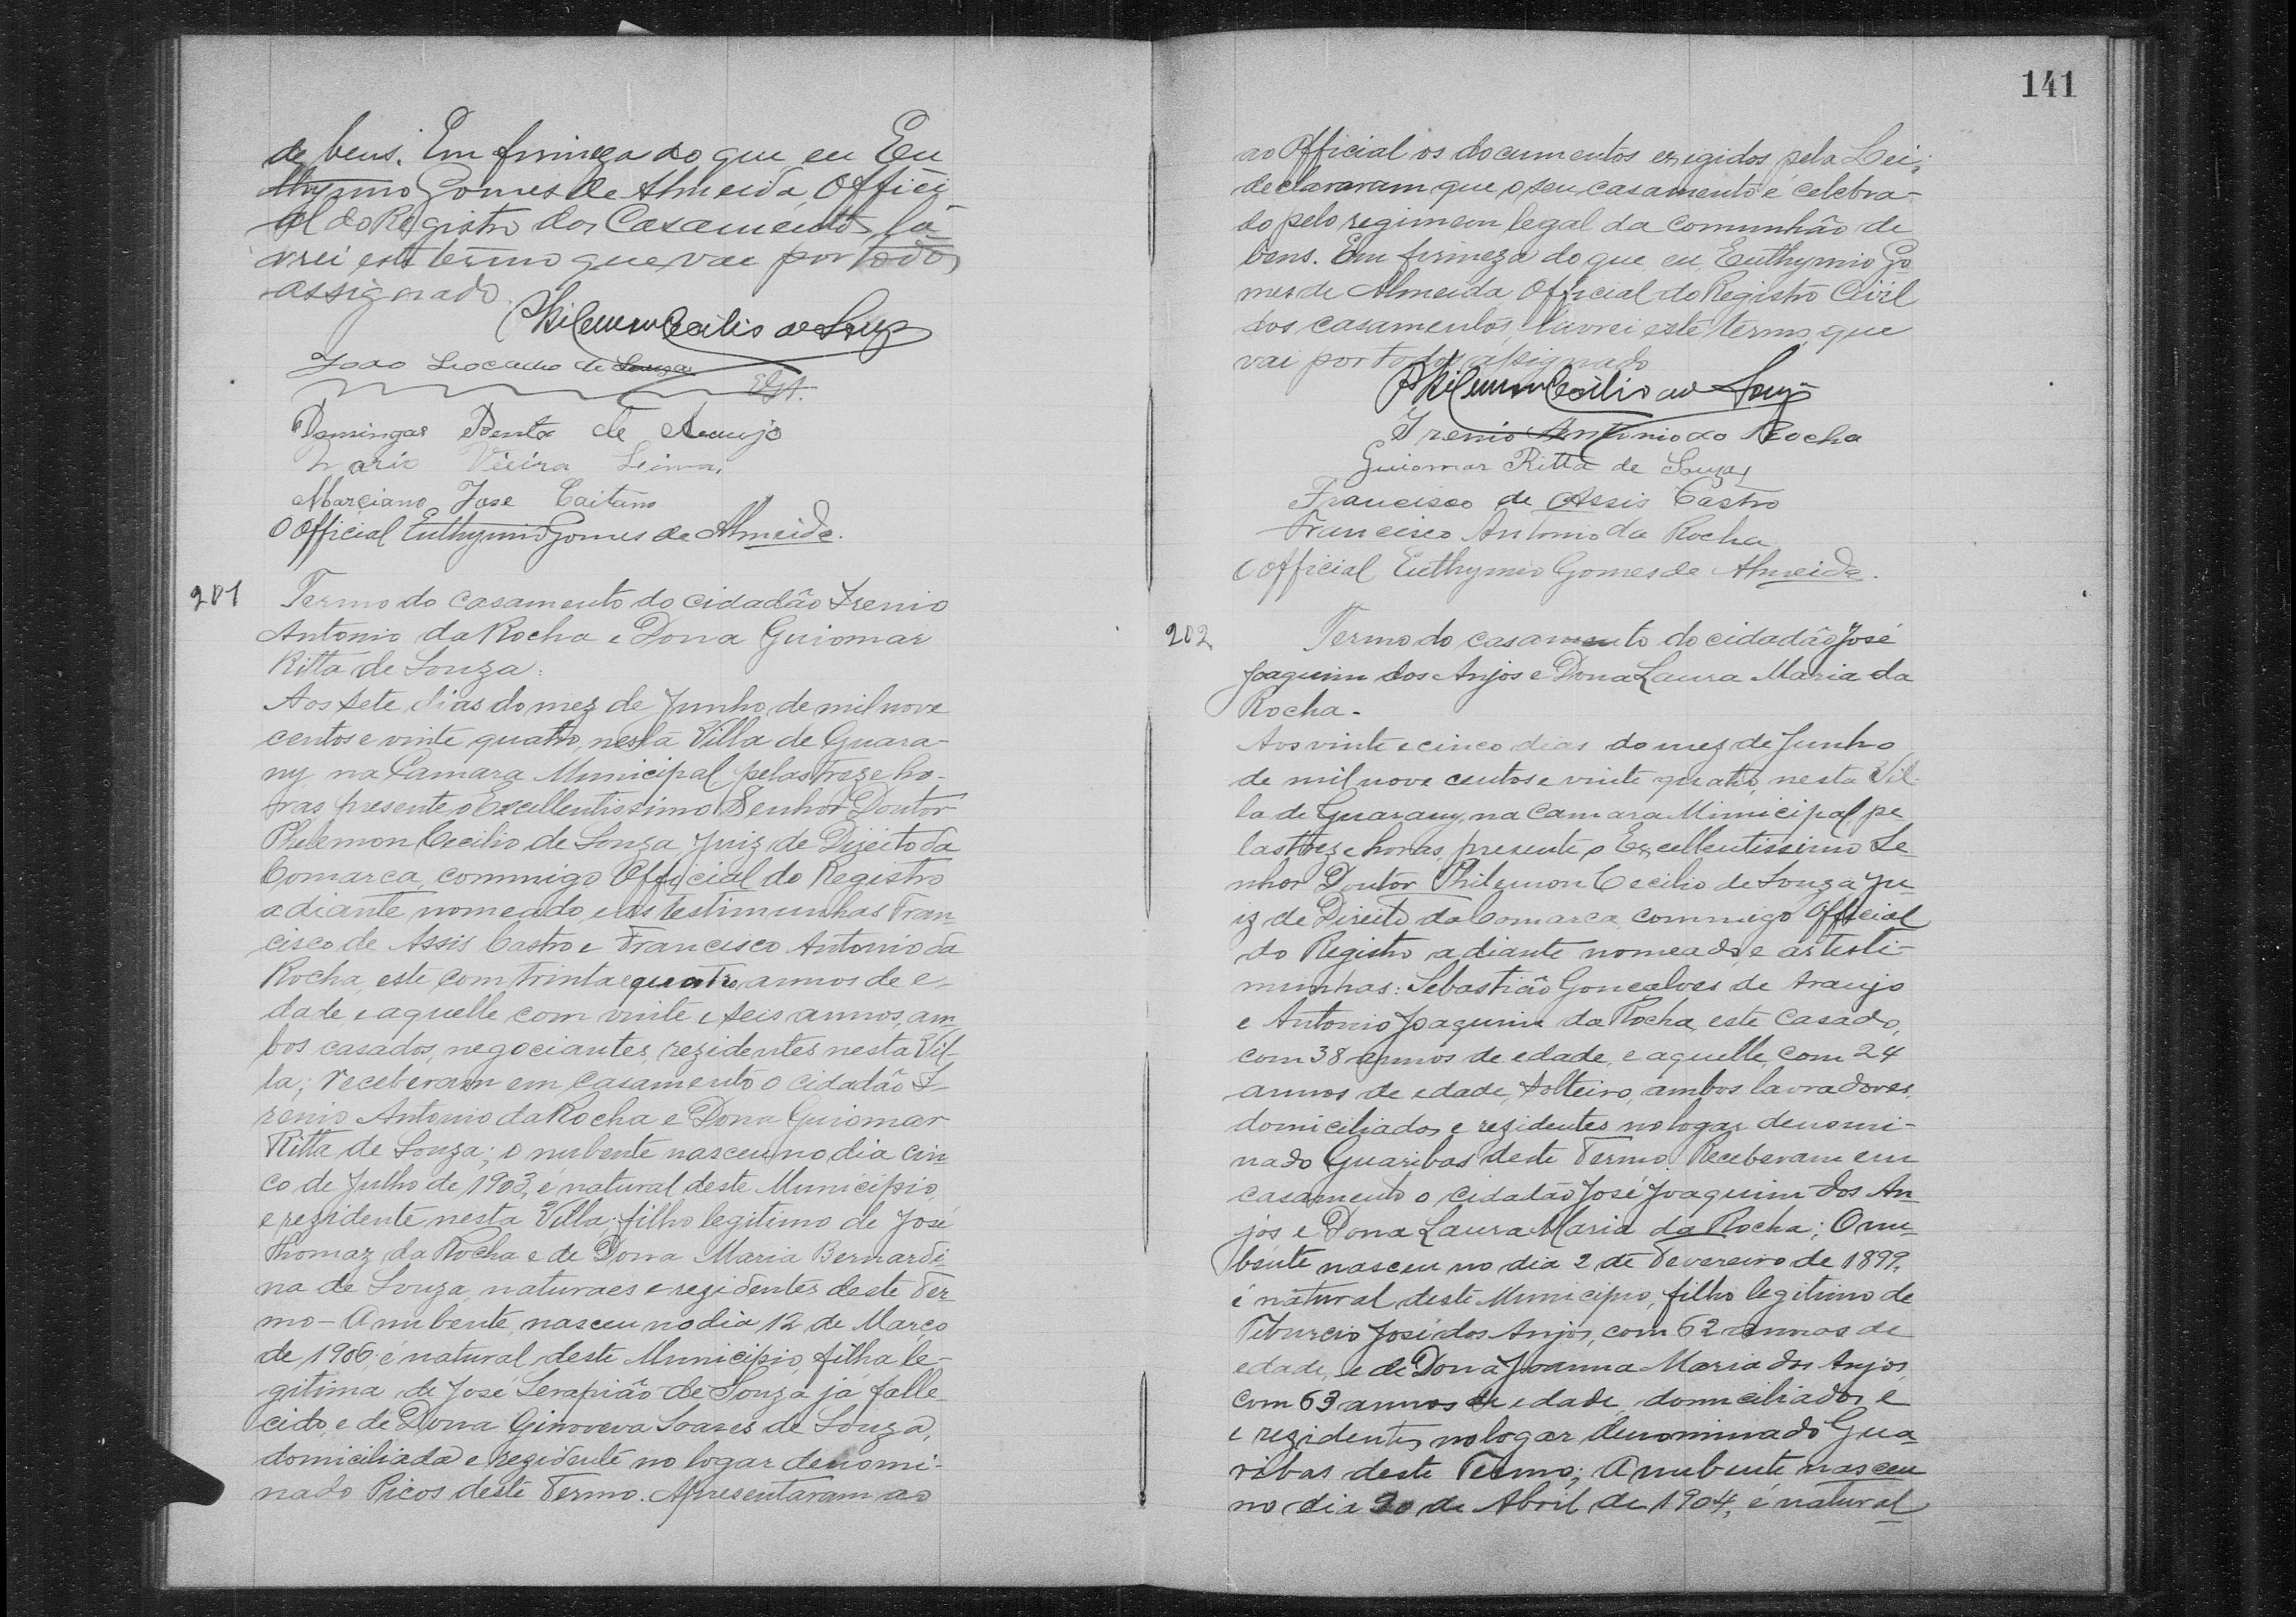 de bens. Em firmeza do que eu Eu
thymio Gomes de Almeida, Offici
al do Registro dos Casamentos la-
vrei este termo que vae por todos
assignado.
Philemon Cecilio de Souza
João Leocadio de Souza
Domingas Benta de Araujo
Mario Vieira Lima,
Marciano José Caitano
O Official Euthymio Gomes de Almeida.
201 Termo do casamento do cidadão Irenio
Antonio da Rocha e Dona Guiomar
Ritta de Souza.
Aos sete dias do mez de Junho de mil nove
centos e vinte quatro, nesta Villa de Guara-
ny na Camara Municipal, pelas treze ho-
ras presente o Excellentissimo Senhor Doutor
Philemon Cecilio de Souza, Juiz de Direito da
Comarca, commigo Official do Registro
adiante nomeado, e as testimunhas Fran-
cisco de Assis Castro e Francisco Antonio da
Rocha, este com trinta e quatro annos de e-
dade e aquelle com vinte e seis annos, am-
bos casados, negociantes, rezidentes nesta Vil-
la; receberam em casamento o cidadão I-
renio Antonio da Rocha e Dona Guiomar
Ritta de Souza; o nubente nasceu no dia cin-
co de Julho de 1903, é natural deste Municipio,
e rezidente nesta Villa, filho legitimo de José
Thomaz da Rocha e de Dona Maria Bernardi-
na de Souza, naturaes e rezidentes deste Ter-
mo - A nubente, nasceu no dia 12 de Março
de 1906, é natural deste Municipio, filha le-
gitima de José Serapião de Souza já falle-
cido, e de Dona Ginoveva Soares de Souza,
domiciliada e rezidente no logar denomi-
nado Picos deste Termo. Apresentaram ao
141
ao Official os documentos exigidos pela Lei;
declararam que o seu casamento é celebra-
do pelo regimem legal da comunhão de
bens. Em firmeza do que, eu, Euthymio Go
mes de Almeida, Official do Registro Civil
dos casamentos, lavrei este termo, que
vai por todos assignado
Philemon Cecilio de Souza
Irenio Antonio da Rocha
Guiomar Ritta de Souza
Francisco de Assis Castro
Francisco Antonio da Rocha
O Official Euthymio Gomes de Almeida.
202 Termo do casamento do cidadão José
Joaquim dos Anjos e Dona Laura Maria da
Rocha.
Aos vinte e cinco dias do mez de Junho
de mil nove centos e vinte quatro, nesta Vil-
la de Guarany, na Camara Municipal, pe
las treze horas, presente o Excellentissimo Se-
nhor Doutor Philemon Cecilio de Souza Ju-
iz de Direito da Comarca, commigo Official
do Registro adiante nomeado, e as testi-
munhas: Sebastião Gonçalves de Araujo
e Antonio Joaquim da Rocha, este casado,
com 38 annos de edade, e aquelle, com 24
annos de edade, solteiro, ambos lavradores,
domiciliados e rezidentes no logar denomi-
nado Guaribas deste Termo. Receberam em
casamento o cidadão José Joaquim dos An-
jos e Dona Laura Maria da Rocha; O nu-
bente nasceu no dia 2 de Fevereiro de 1899,
é natural deste Municipio, filho legitimo de
Tiburcio José dos Anjos, com 62 annos de
edade, e de Dona Joanna Maria dos Anjos,
com 63 annos de edade, domiciliados e
e rezidentes no logar denominado Gua-
ribas deste Termo; A nubente nasceu
no dia 20 de Abril de 1904, é natural